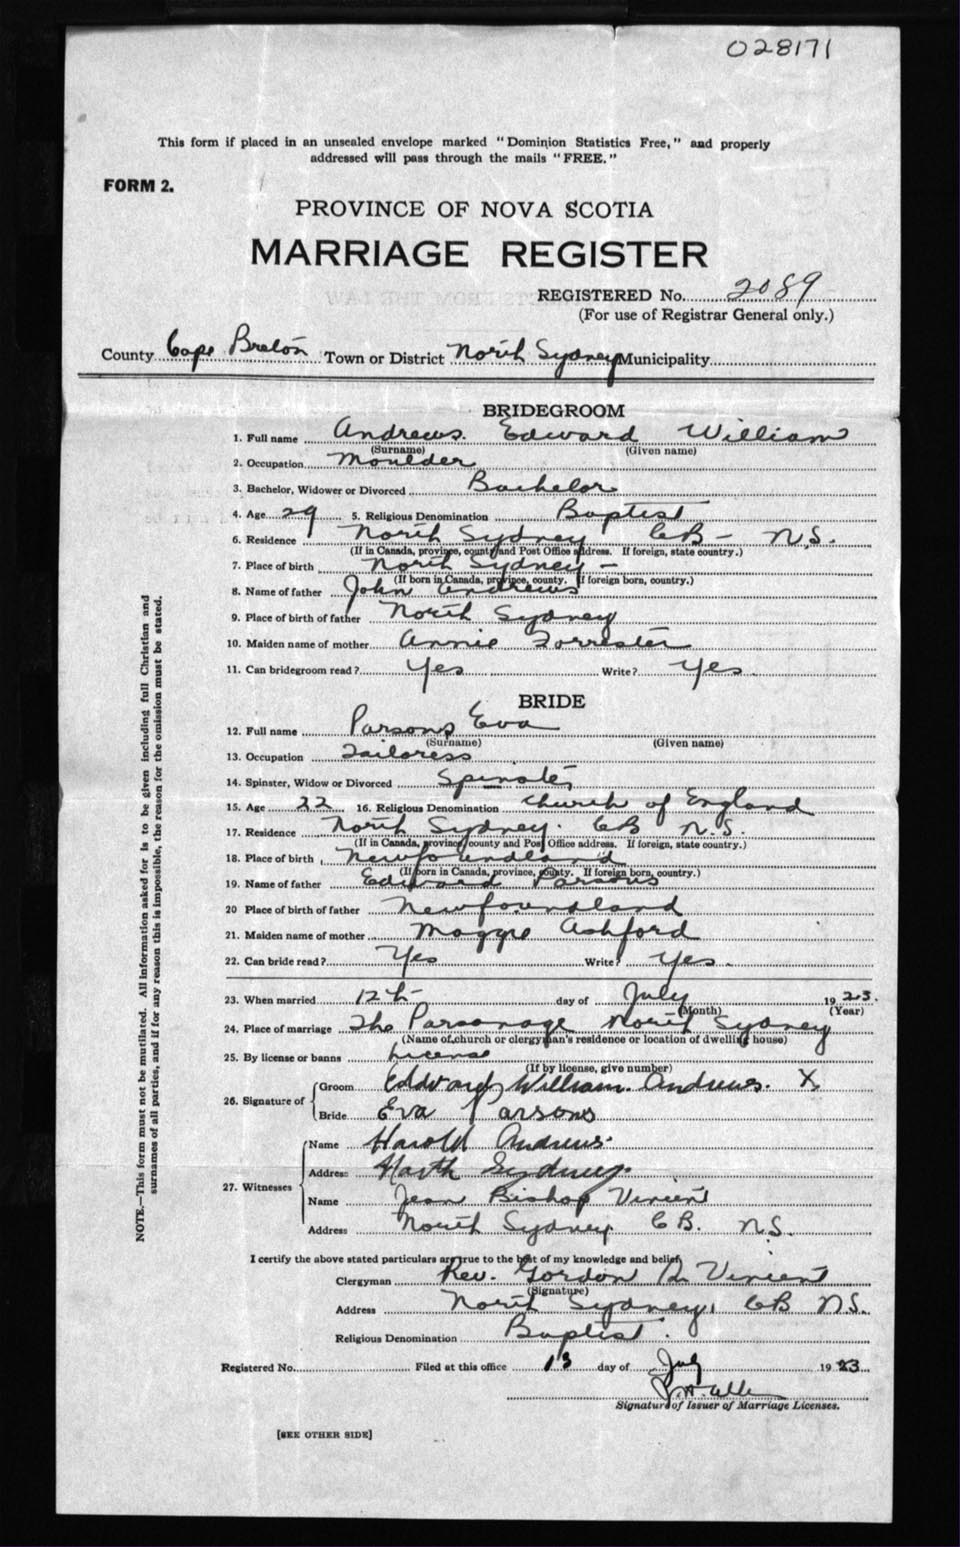 028171
This form if placed in an unsealed envelope marked "Dominion Statistics Free," and properly
addressed will pass through the mails "FREE."
FORM 2.
PROVINCE OF NOVA SCOTIA
MARRIAGE REGISTER
REGISTERED No. 2089
(For use of Registrar General only.)
County Cape Breton Town or District North Sydney Municipality
BRIDEGROOM
1. Full name Andrews Edward William
(Surname) (Given name)
2. Occupation Moulder
3. Bachelor, Widower or Divorced Bachelor
4. Age 29 5. Religious Denomination Baptist
6. Residence North Sydney CB - N.S.
(If in Canada, province, county and Post Office address. If foreign, state country.)
7. Place of birth North Sydney -
(If born in Canada, province, county. If foreign born, country.)
8. Name of father John Andrews
9. Place of birth of father North Sydney
10. Maiden name of mother Annie Forrester
11. Can bridegroom read? Yes Write? Yes
BRIDE
12. Full name Parsons Eva
(Surname) (Given name)
13. Occupation Tailoress
14. Spinster, Widow or Divorced Spinster
15. Age 22 16. Religious Denomination Church of England
17. Residence North Sydney. CB N.S.
(If in Canada, province county and Post Office address. If foreign, state country.)
18. Place of birth Newfoundland
(If born in Canada, province, county. If foreign born, country.)
19. Name of father Edward Parsons
20 Place of birth of father Newfoundland
21. Maiden name of mother Maggie Ashford
22. Can bride read? Yes Write? Yes.
23. When married 12th day of July 1923.
(Month) (Year)
24. Place of marriage The Parsonage North Sydney
(Name of church or clergyman's residence or location of dwelling house)
25. By license or banns License
(If by license, give number)
26. Signature of Groom Edward William Andrews. X
Bride Eva Parsons
27. Witnesses Name Harold Andrews
Address North Sydney.
Name Jean Bishop Vincent
Address North Sydney CB. N.S.
I certify the above stated particulars are true to the best of my knowledge and belief,
Clergyman Rev. Gordon Vincent
(Signature)
Address North Sydney, CB N.S.
Religious Denomination Baptist.
Registered No. Filed at this office 13 day of July 1923
Signature of Issuer of Marriage Licenses.
[SEE OTHER SIDE]
NOTE.—This form must not be mutilated. All information asked for is to be given including full Christian and
surnames of all parties, and if for any reason this is impossible, the reason for the omission must be stated.